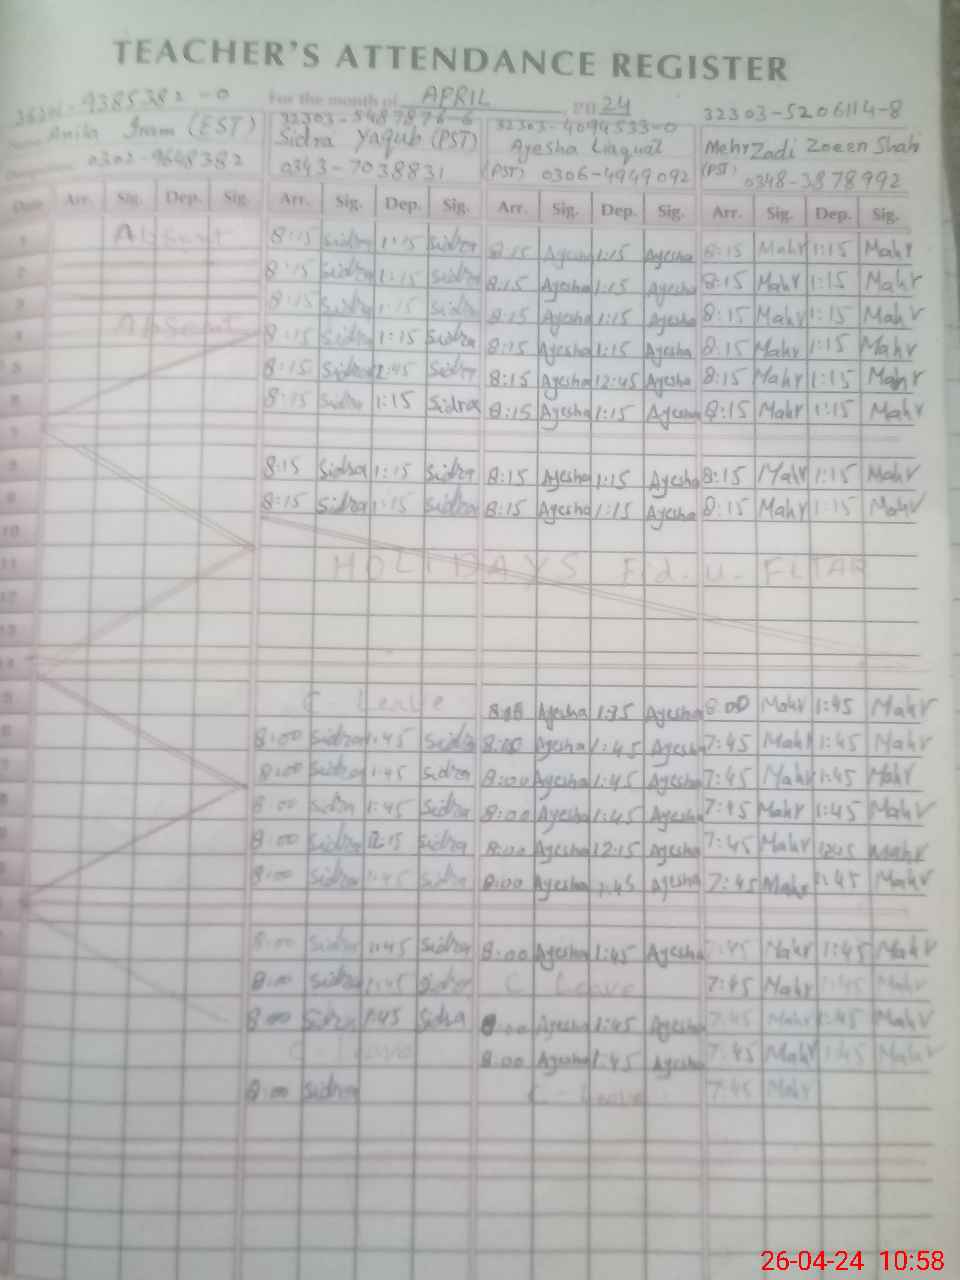 TEACHER'S ATTENDANCE REGISTER
For the month of APRIL 24
9385382-0 32303-5487876-6 32303-4094533-0 32303-5206114-8
Anila Iram (EST) Sidra Yaqub (PST) Ayesha Liaquat Mehr Zadi Zoeen Shah
0302-9648382 0343-7038831 (PST) 0306-4949092 (PST) 0348-3878992
Date Arr. Sig. Dep. Sig. Arr. Sig. Dep. Sig. Arr. Sig. Dep. Sig. Arr. Sig. Dep. Sig.
1 Absent 8:15 Sidra 1:15 Sidra 8:15 Ayesha 1:15 Ayesha 8:15 Mahr 1:15 Mahr
2 8:15 Sidra 1:15 Sidra 8:15 Ayesha 1:15 Ayesha 8:15 Mahr 1:15 Mahr
3 8:15 Sidra 1:15 Sidra 8:15 Ayesha 1:15 Ayesha 8:15 Mahr 1:15 Mahr
4 Absent 8:15 Sidra 1:15 Sidra 8:15 Ayesha 1:15 Ayesha 8:15 Mahr 1:15 Mahr
5 8:15 Sidra 12:45 Sidra 8:15 Ayesha 12:45 Ayesha 8:15 Mahr 1:15 Mahr
6 8:15 Sidra 1:15 Sidra 8:15 Ayesha 1:15 Ayesha 8:15 Mahr 1:15 Mahr
8:15 Sidra 1:15 Sidra 8:15 Ayesha 1:15 Ayesha 8:15 Mahr 1:15 Mahr
8:15 Sidra 1:15 Sidra 8:15 Ayesha 1:15 Ayesha 8:15 Mahr 1:15 Mahr
10
11 HOLIDAYS Eid-u-FITAR
12
13
14
C Leave Ayesha Ayesha 8:00 Mahr 1:45 Mahr
8:00 Sidra 1:45 Sidra 8:00 Ayesha 1:45 Ayesha 7:45 Mahr 1:45 Mahr
8:00 Sidra 1:45 Sidra 8:00 Ayesha 1:45 Ayesha 7:45 Mahr 1:45 Mahr
8:00 Sidra 1:45 Sidra 8:00 Ayesha 1:45 Ayesha 7:45 Mahr 1:45 Mahr
8:00 Sidra 12:15 Sidra 8:00 Ayesha 12:15 Ayesha 7:45 Mahr Mahr
8:00 Sidra 1:45 Sidra 8:00 Ayesha 1:45 Ayesha 7:45 Mahr 1:45 Mahr
8:00 Sidra 1:45 Sidra 8:00 Ayesha 1:45 Ayesha 7:45 Mahr 1:45 Mahr
8:00 Sidra 1:45 Sidra C Leave 7:45 Mahr 1:45 Mahr
8:00 Sidra 1:45 Sidra 8:00 Ayesha 1:45 Ayesha 7:45 Mahr 1:45 Mahr
C-Leave 8:00 Ayesha 1:45 Ayesha 7:45 Mahr 1:45 Mahr
8:00 Sidra C-Leave 7:45 Mahr
26-04-24 10:58